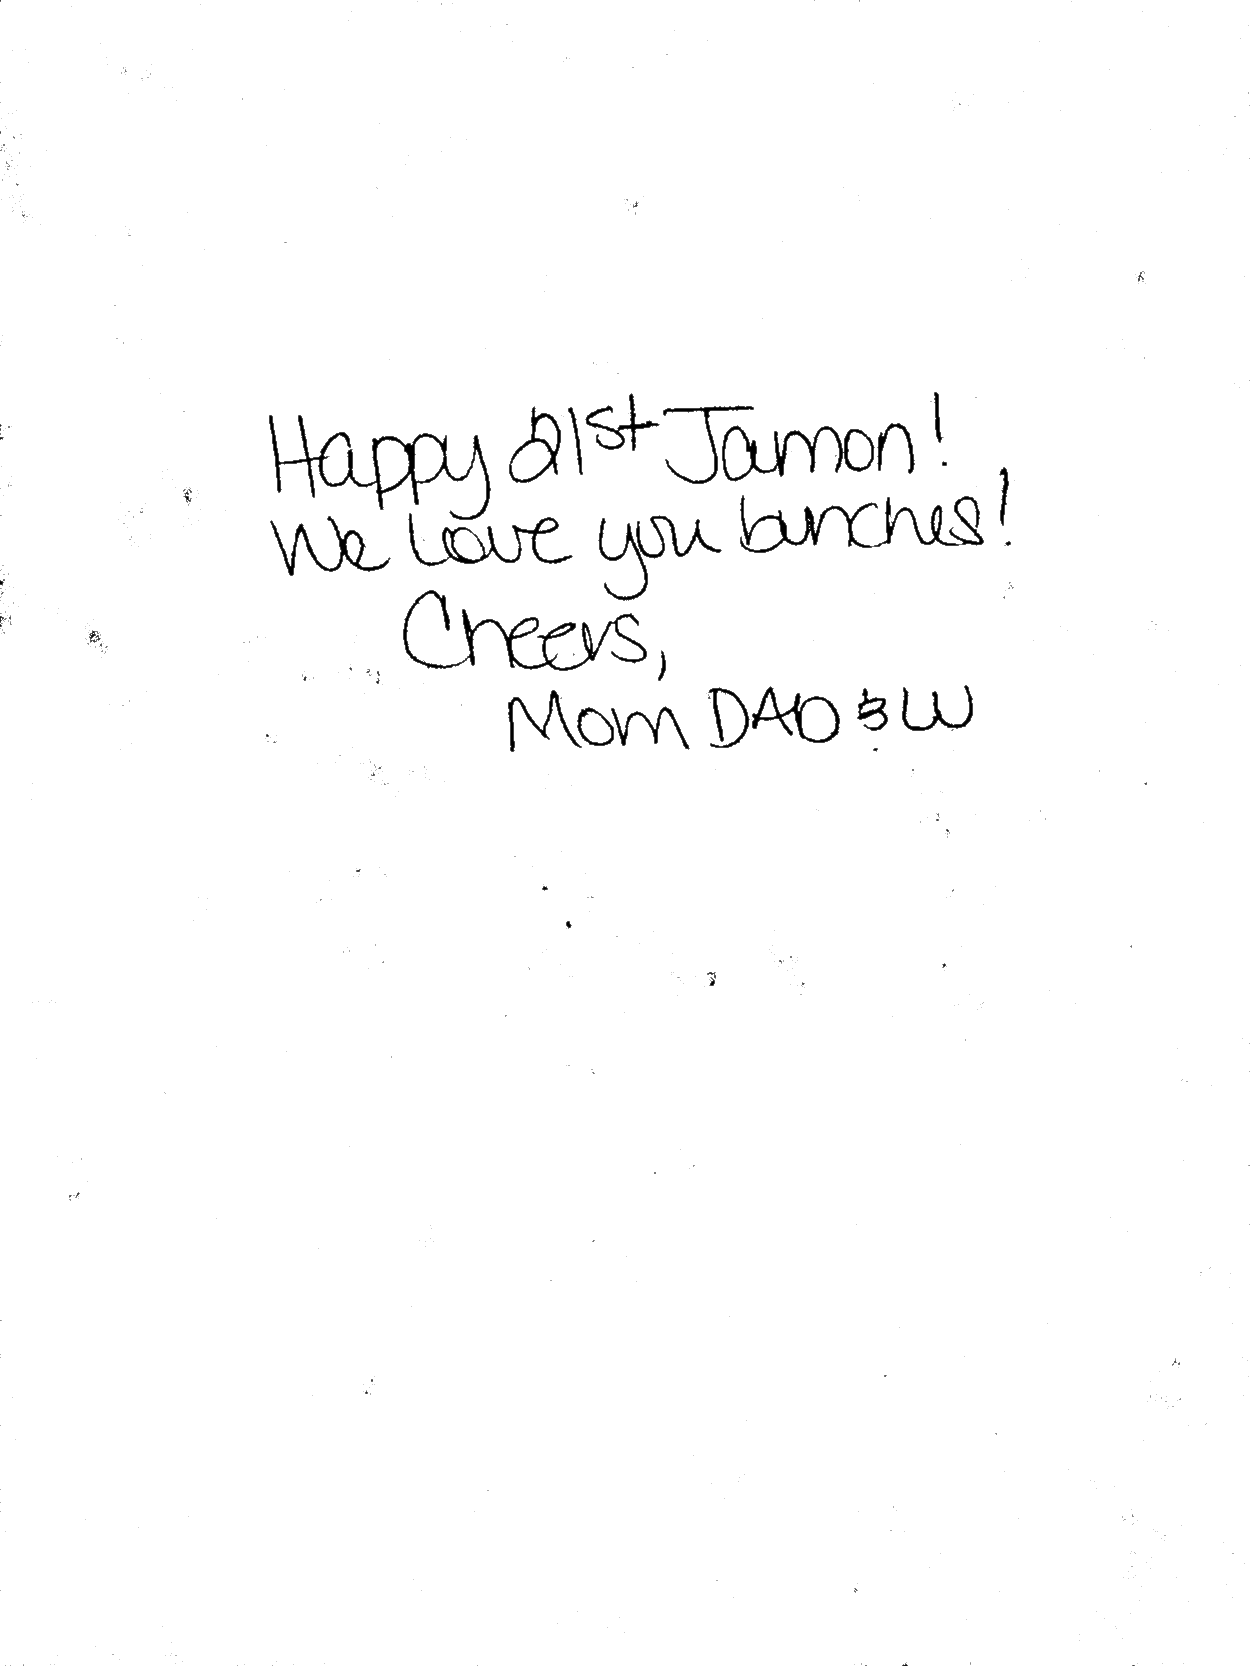 Happy 21st Jamon!
We love you bunches!
Cheers,
Mom DAD & W